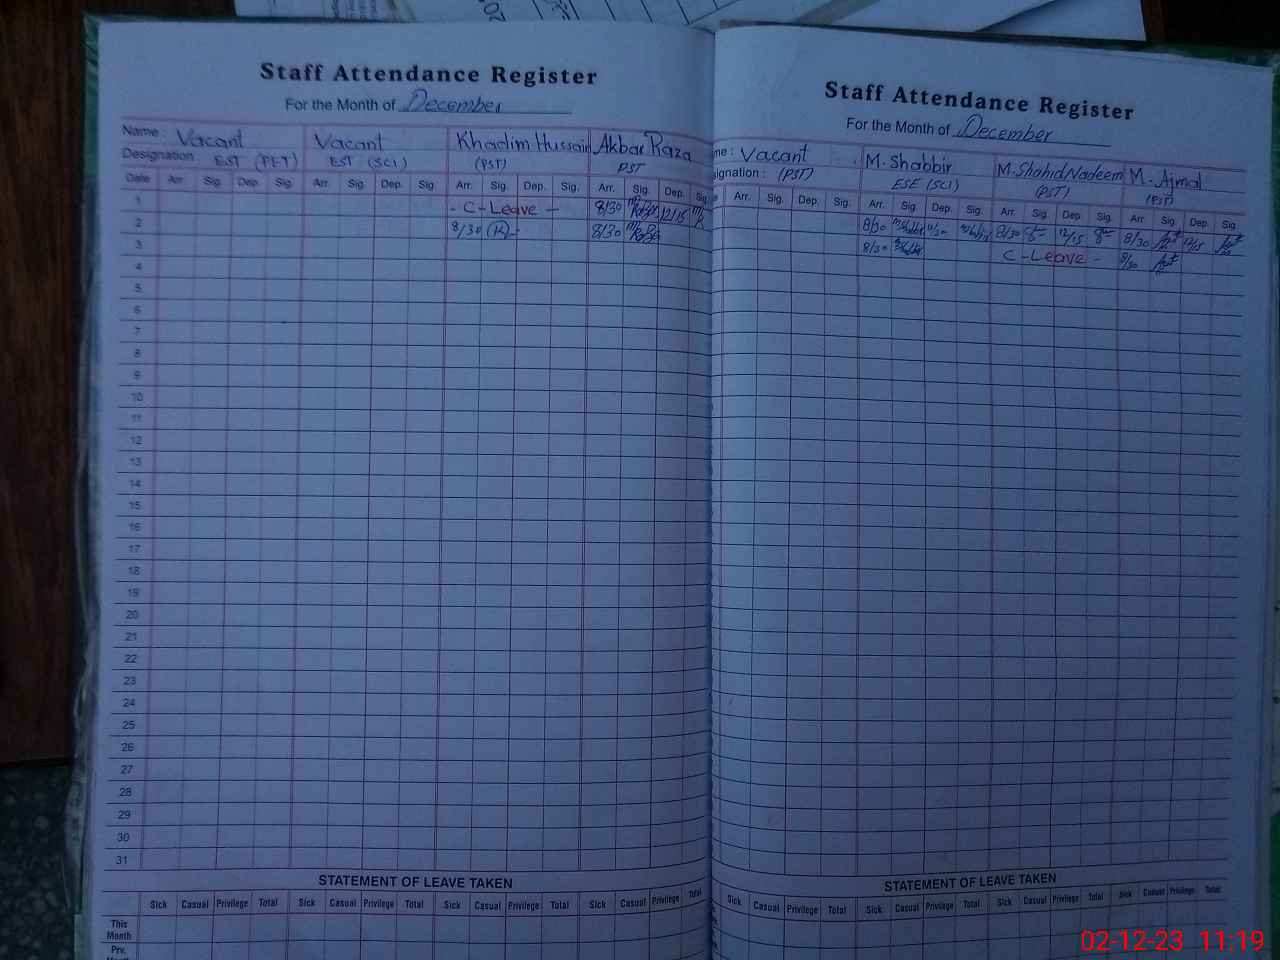 Staff Attendance Register
For the Month of December
Name : Vacant Vacant Khadim Hussain Akbar Raza
Designation : EST (PET) EST (SCI) (PST) PST
Date Arr. Sig. Dep. Sig. Arr. Sig. Dep. Sig. Arr. Sig. Dep. Sig. Arr. Sig. Dep. Sig.
1 - C-Leave - 8/30 12/15
2 8/30 8/30
3
4
5
6
7
8
9
10
11
12
13
14
15
16
17
18
19
20
21
22
23
24
25
26
27
28
29
30
31
STATEMENT OF LEAVE TAKEN
Sick Casual Privilege Total Sick Casual Privilege Total Sick Casual Privilege Total Sick Casual Privilege Total
This Month
Prv.
Staff Attendance Register
For the Month of December
me : Vacant M. Shabbir M. Shahid Nadeem M. Ajmal
signation : (PST) ESE (SCI) (PST) (PST)
Arr. Sig. Dep. Sig. Arr. Sig. Dep. Sig. Arr. Sig. Dep. Sig. Arr. Sig. Dep. Sig.
8/30 8/30 12/15 8/30 12/15
8/30 C-Leave - 8/30
STATEMENT OF LEAVE TAKEN
Sick Casual Privilege Total Sick Casual Privilege Total Sick Casual Privilege Total Sick Casual Privilege Total
02-12-23 11:19